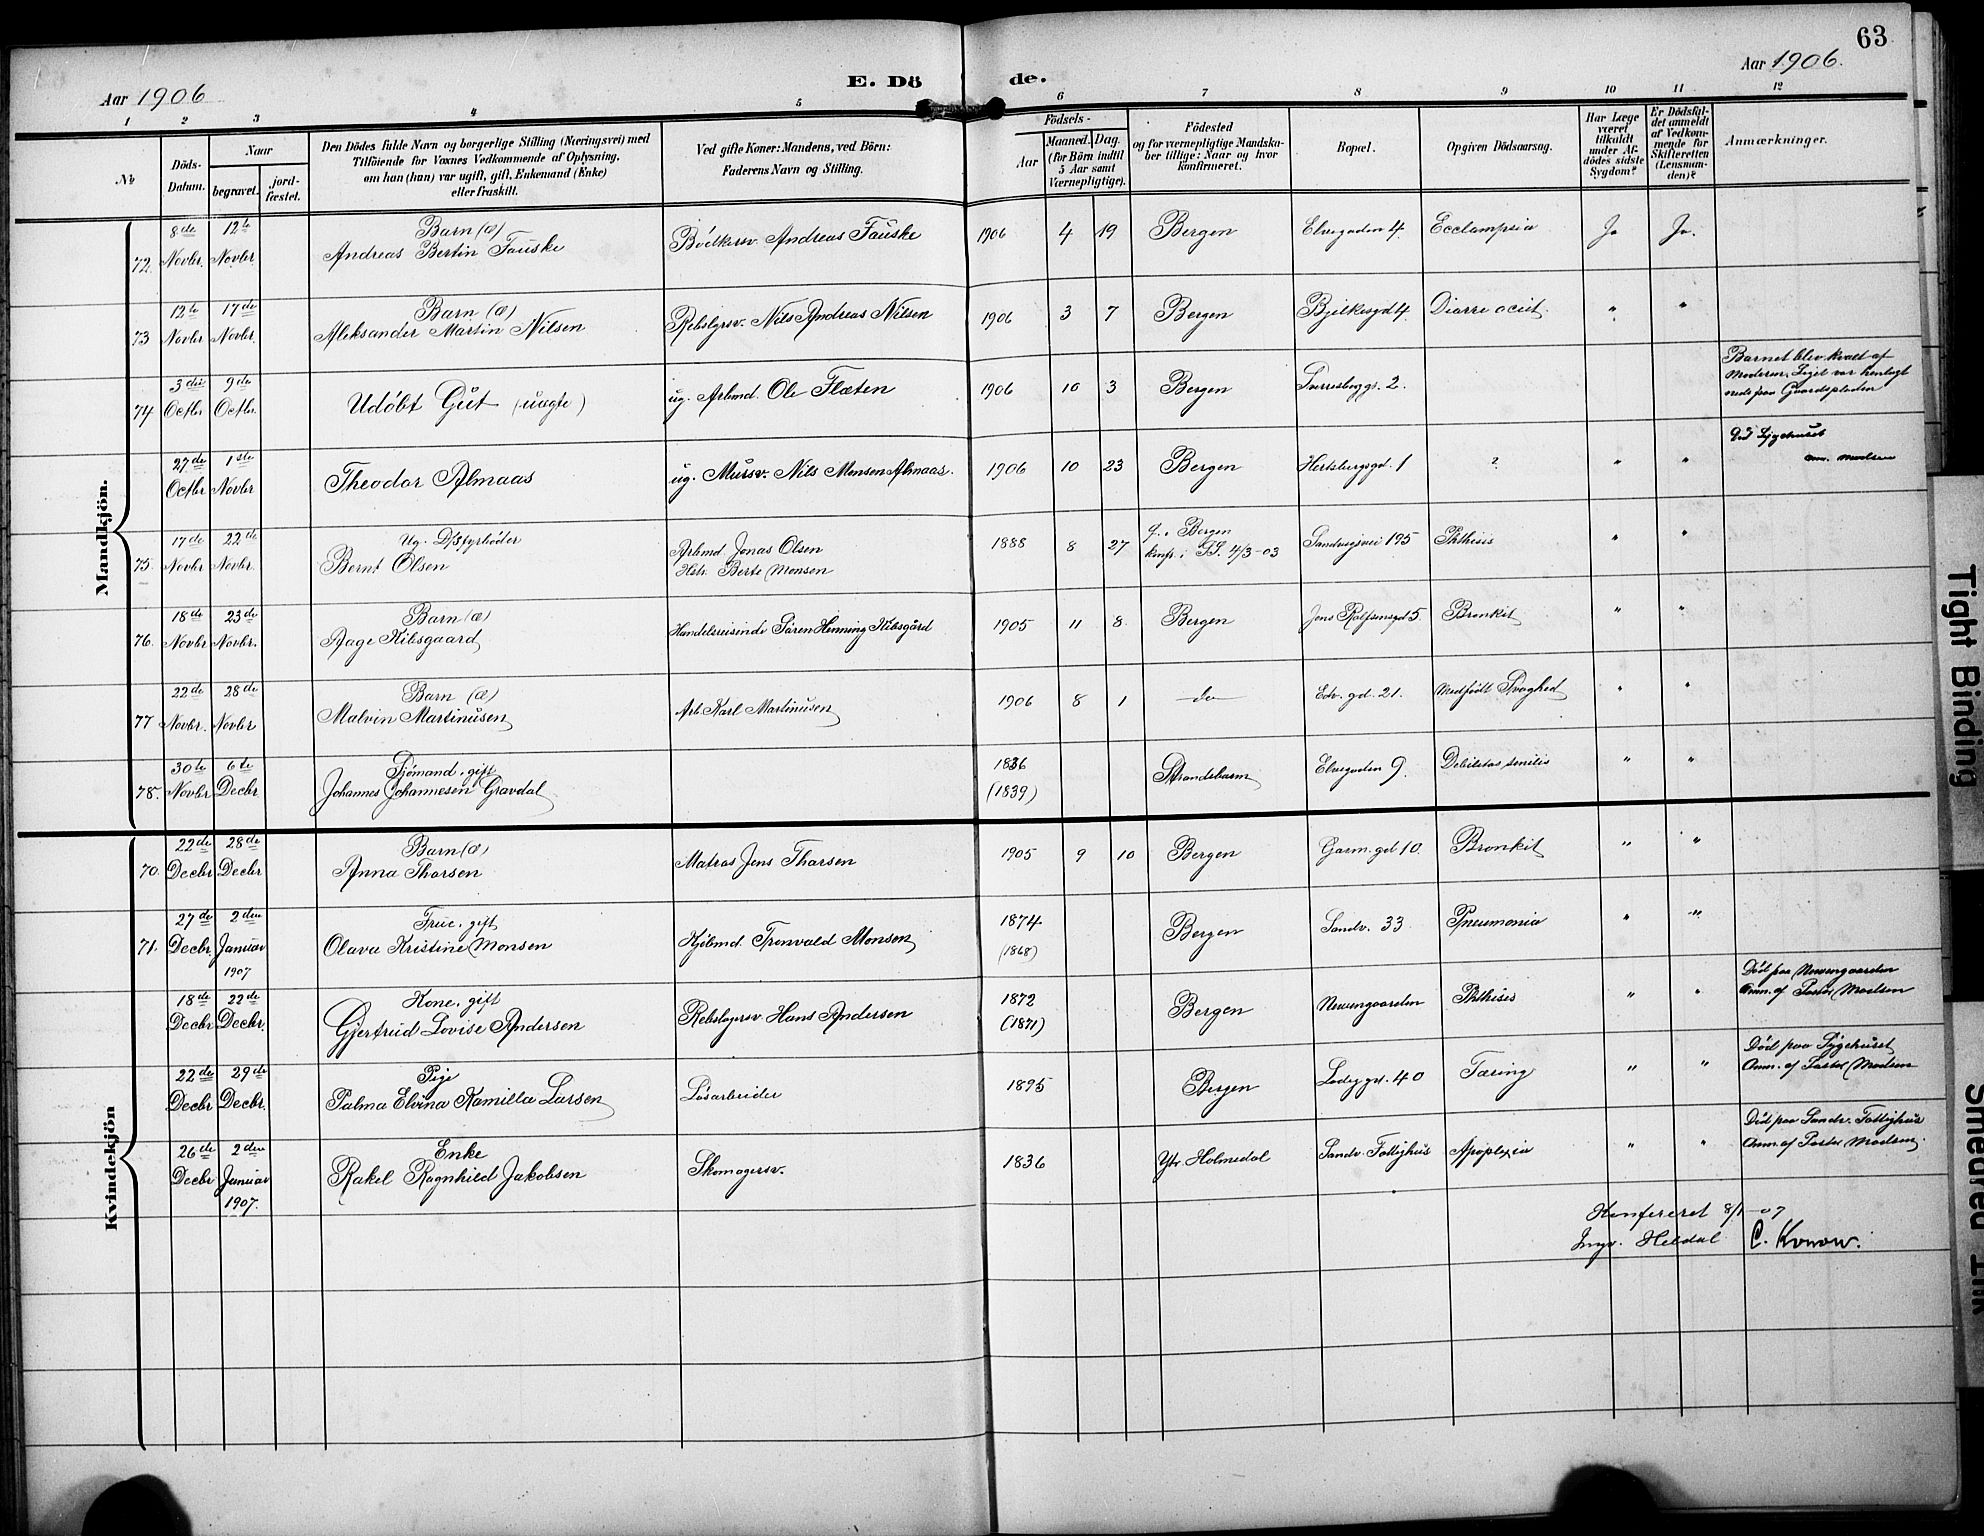 63
Aar 1906
E. Dö
de.
Aar 1906.
1 2 3 4 5 6 7 8 9 10 11 12
No
Döds-
Datum.
Naar
begravet.
jord-
fæstet.
Den Dödes fulde Navn og borgerlige Stilling (Næringsvei) med
Tilföiende for Voxnes Vedkommende af Oplysning,
om han (hun) var ugift, gift, Enkemand (Enke)
eller fraskilt.
Ved gifte Koner: Mandens, ved Börn:
Faderens Navn og Stilling.
Födsels-
Aar
Maaned.
Dag.
(for Börn indtil
5 Aar samt
Værnepligtige).
Födested
og for værnepligtige Mandska-
ber tillige: Naar og hvor
konfirmeret.
Bopæl.
Opgiven Dödsaarsag.
Har Læge
været
tilkaldt
under Af-
dödes sidste
Sygdom?
Er Dödsfal-
det anmeldt
af Vedkom-
mende for
Skifteretten
(Lensman-
den)?
Anmærkninger.
Mandkjön.
8de 12te Barn (æ)
72. Novbr. Novbr. Andreas Bertin Fauske Bödkersv. Andreas Fauske 1906 4 19 Bergen Elvegaden 4. Ecclampsia Ja Ja.
12te 17de Barn (æ)
73 Novbr Novbr. Aleksander Martin Nilsen Rebslgrsv. Nils Andreas Nilsen 1906 3 7 Bergen Bjelkesgd 4. Diarre " "
3die 9de
74 Octbr Octbr. Udöbt Gut (uægte) ug. Arbmd. Ole Flæten 1906 10 3 Bergen Sverresbggt. 2.
Barnet blev kvalt af
Moderen. Liget var henlagt
ned paa Gaardspladsen
27de 1ste
Octbr Novbr Theodor Almaas ug. Mursv. Nils Monsen Almaas. 1906 10 23 Bergen Hertsbergsgd. 1 ? " "
Sygehuset
17de 22de Ug. D/S fyrböder
75. Novbr Novbr. Bernt Olsen Arbmd. Jonas Olsen
Hstr. Berte Monsen 1888 8 27 f. i Bergen
knf. i 4/3-03 Sandvigsvei 195 Phthisis " "
18de 23de Barn (æ)
76. Novbr Novbr. Aage Kibsgaard Handelsreisende Sören Henning Kibsgård 1905 11 8 Bergen Jens Rolfsensgd 5 Bronkit " "
22de 28de Barn (æ)
77 Novbr. Novbr Malvin Martinusen Arb. Karl Martinusen 1906 8 1 do Edv. gd. 21. Medfödt Svaghed " "
30te 6te Sjömand, gift
78. Novbr Decbr Johannes Johannesen Gravdal 1836
(1839) Strandebarm Elvegaden 9. Debilitas senilis " "
Kvindekjön
22de 28de Barn (æ)
70. Decbr Decbr Anna Thorsen Matros Jens Thorsen 1905 9 10 Bergen Garm. gd 10. Bronkit " "
27de 2den Frue, gift
71. Decbr. Januar Olava Kristine Monsen Kjöbmd. Tronvald Monsen 1874
1907 (1868) Bergen Sandv. 33 Pneumonia " "
18de 22de Kone, gift
Decbr Decbr. Gjertrud Lovise Andersen Rebslagersv. Hans Andersen 1872
(1871) Bergen Nevengaarden Phthisis " "
Död paa Nevengaarden
Anm. af Pastor Madsen
22de 29de Pige
Decbr Decbr. Palma Elvina Kamilla Larsen Lösarbeider 1895 Bergen Ladeg gd. 40 Tæring " "
Död paa Sygehuset
Anm. af Pastor Madsen
26de 2den Enke
Decbr Januar Rakel Ragnhild Jakobsen Skomagersv. 1836 Ytr Holmedal Sandv. Fattighus Apoplexia " "
1907.
Död paa Sandv. Fattighus
Anm. af Pastor Madsen.
Konfereret 8/1-07
Ingv. Heldal C. Konow.
Tight Binding
Smeared Ink